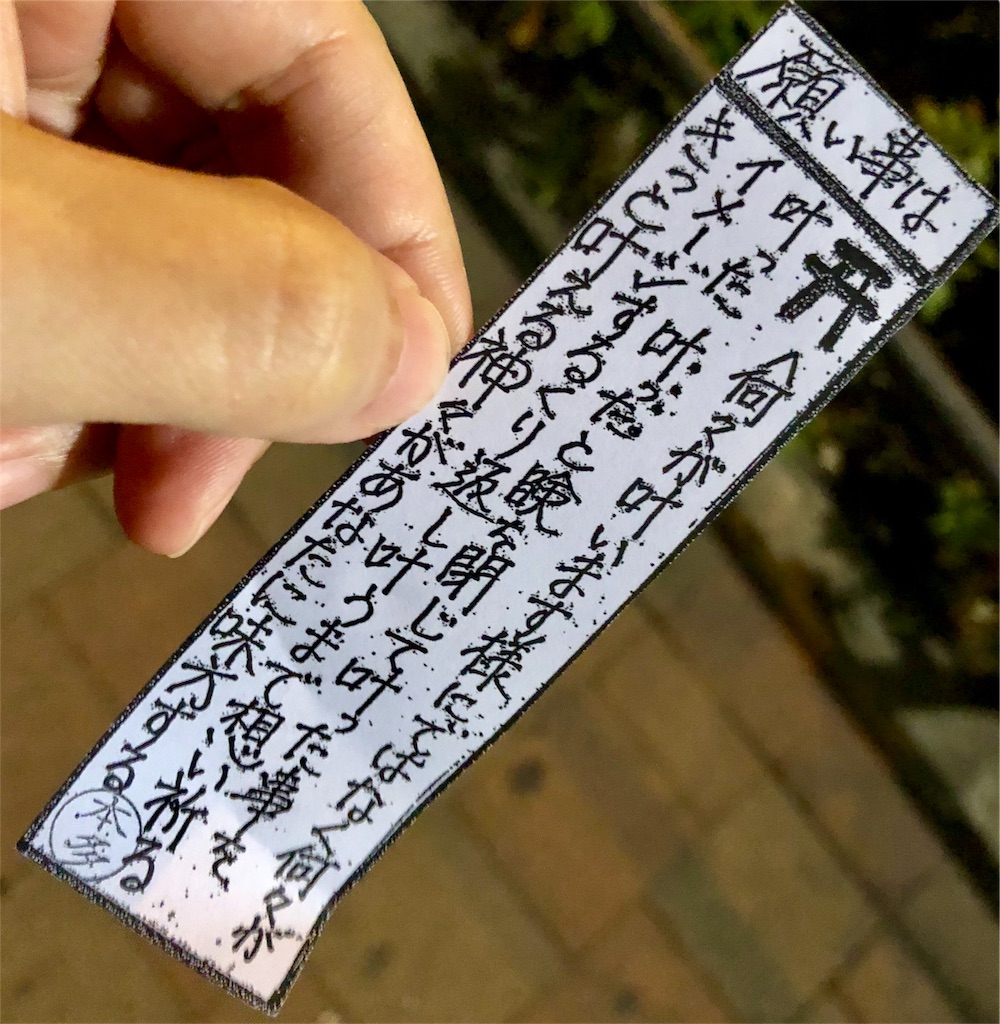 願い事は
何々が叶います様にではなく何々が
叶った。叶ったと瞼を閉じて叶った事を
イメージするくり返し叶うまで想い祈る
きっと叶える神々があなたに味方する
本多